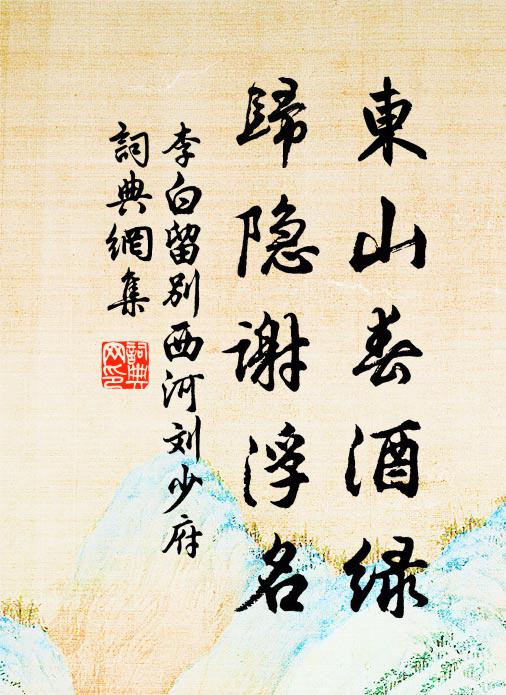 東山春酒緑
歸隐謝浮名
李白留别西河刘少府
詞典網集
詞典网印